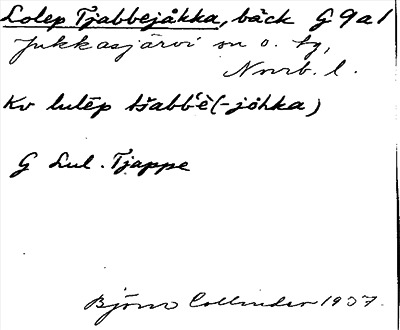 Lolep Tjabbejåkka, bäck G 9 a 1
Jukkasjärvi sn o. tg,
Norrb. l.
Kv lulēp tšabb'ē (-jåhka)
G Lul. Tjappe
Björn Collinder 1937.